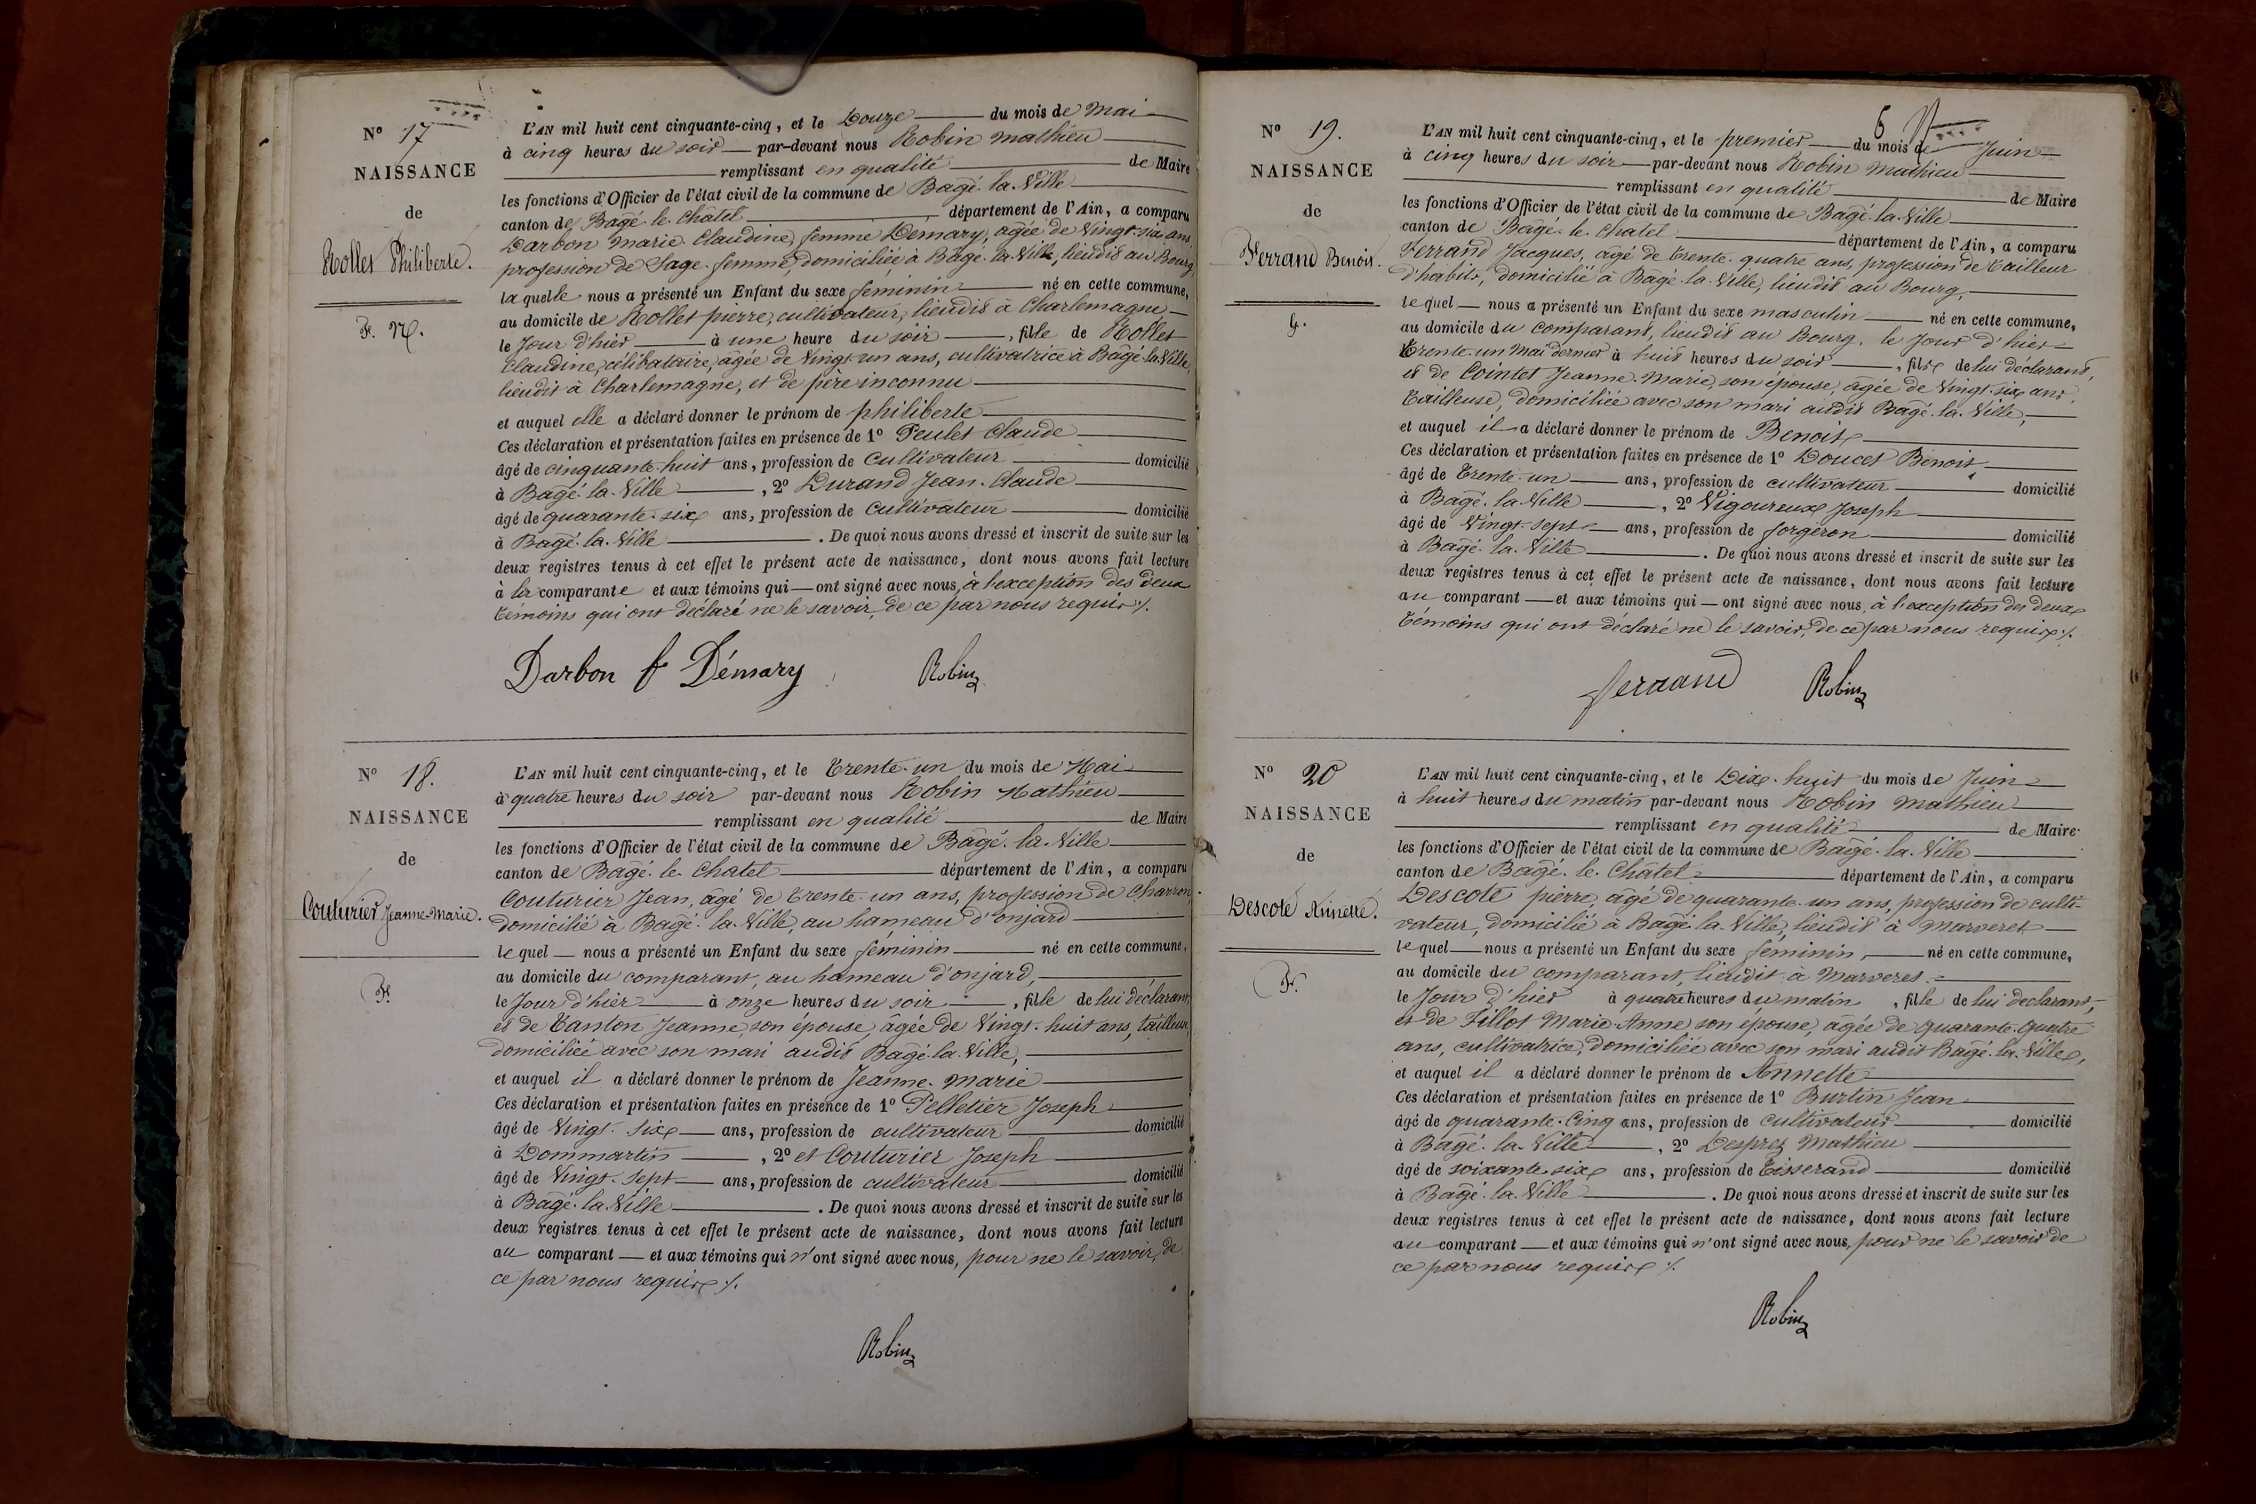 N° 17
NAISSANCE
de
Rollet Philiberte.
F. N.
L'AN mil huit cent cinquante-cinq, et le Douze du mois de Mai
à cinq heures du soir par-devant nous Robin Mathieu
remplissant en qualité de Maire
les fonctions d'Officier de l'état civil de la commune de Bagé-la-Ville
canton de Bagé-le-Châtel département de l'Ain, a comparu
Darbon Marie Claudine, femme Demary, âgée de Vingt-six ans
profession de Sage-femme, domiciliée à Bagé-la-Ville, lieudit au Bourg
laquelle nous a présenté un Enfant du sexe féminin né en cette commune,
au domicile de Rollet pierre, cultivateur, lieudit à Charlemagne
le Jour d'hier à une heure du soir, fille de Rollet
Claudine, célibataire, âgée de Vingt-un ans, cultivatrice à Bagé-la-Ville,
lieudit à Charlemagne, et de père inconnu
et auquel elle a déclaré donner le prénom de philiberte
Ces déclaration et présentation faites en présence de 1° Peulet Claude
âgé de cinquante-huit ans, profession de Cultivateur domicilié
à Bagé-la-Ville, 2° Durand Jean-Claude
âgé de quarante-six ans, profession de Cultivateur domicilié
à Bagé-la-Ville. De quoi nous avons dressé et inscrit de suite sur les
deux registres tenus à cet effet le présent acte de naissance, dont nous avons fait lecture
à la comparante et aux témoins qui ont signé avec nous, à l'exception des deux
témoins qui ont déclaré ne le savoir, de ce par nous requis ./.
Darbon f Démary Robin
N° 18.
NAISSANCE
de
Couturier Jeanne-Marie.
F.
L'AN mil huit cent cinquante-cinq, et le Trente-un du mois de Mai
à quatre heures du soir par-devant nous Robin Mathieu
remplissant en qualité de Maire
les fonctions d'Officier de l'état civil de la commune de Bagé-la-Ville
canton de Bagé-le-Chatel département de l'Ain, a comparu
Couturier Jean, âgé de Trente-un ans, profession de Charron
domicilié à Bagé-la-Ville, au hameau d'onjard
lequel nous a présenté un Enfant du sexe féminin né en cette commune,
au domicile du comparant, au hameau d'onjard,
le Jour d'hier à onze heures du soir, fille de lui déclarant,
et de Tanton Jeanne son épouse, âgée de Vingt-huit ans, tailleuse,
domiciliée avec son mari audit Bagé-la-Ville,
et auquel il a déclaré donner le prénom de Jeanne-Marie
Ces déclaration et présentation faites en présence de 1° Pelletier Joseph
âgé de Vingt-six ans, profession de cultivateur domicilié
à Dommartin, 2° et Couturier Joseph
âgé de Vingt-sept ans, profession de cultivateur domicilié
à Bagé-la-Ville. De quoi nous avons dressé et inscrit de suite sur les
deux registres tenus à cet effet le présent acte de naissance, dont nous avons fait lecture
au comparant et aux témoins qui n'ont signé avec nous, pour ne le savoir, de
ce par nous requis ./.
Robin
6
N° 19.
NAISSANCE
de
Ferrand Benoit.
G.
L'AN mil huit cent cinquante-cinq, et le premier du mois de Juin
à cinq heures du soir par-devant nous Robin Mathieu
remplissant en qualité de Maire
les fonctions d'Officier de l'état civil de la commune de Bagé-la-Ville
canton de Bagé-le-Chatel département de l'Ain, a comparu
Ferrand Jacques, âgé de Trente-quatre ans, profession de Tailleur
d'habits, domicilié à Bagé-la-Ville, lieudit au Bourg,
lequel nous a présenté un Enfant du sexe masculin né en cette commune,
au domicile du comparant, lieudit au Bourg, le Jour d'hier
Trente-un Mai dernier à huit heures du soir, fils de lui déclarant,
et de Cointet Jeanne-Marie, son épouse, âgée de Vingt-six ans,
Tailleuse, domiciliée avec son mari audit Bagé-la-Ville,
et auquel il a déclaré donner le prénom de Benoit
Ces déclaration et présentation faites en présence de 1° Doucet Benoit
âgé de Trente-un ans, profession de cultivateur domicilié
à Bagé-la-Ville, 2° Vigoureux Joseph
âgé de Vingt-sept ans, profession de forgeron domicilié
à Bagé-la-Ville. De quoi nous avons dressé et inscrit de suite sur les
deux registres tenus à cet effet le présent acte de naissance, dont nous avons fait lecture
au comparant et aux témoins qui ont signé avec nous, à l'exception des deux
témoins qui ont déclaré ne le savoir, de ce par nous requis ./.
ferrand Robin
N° 20
NAISSANCE
de
Descote Annette.
F.
L'AN mil huit cent cinquante-cinq, et le Dix-huit du mois de Juin
à huit heures du matin par-devant nous Robin Mathieu
remplissant en qualité de Maire
les fonctions d'Officier de l'état civil de la commune de Bagé-la-Ville
canton de Bagé-le-Châtel département de l'Ain, a comparu
Descote pierre, âgé de quarante-un ans, profession de culti-
vateur, domicilié à Bagé-la-Ville, lieudit à Marveret
lequel nous a présenté un Enfant du sexe féminin, né en cette commune,
au domicile du comparant, lieudit à Marveret
le Jour d'hier à quatre heures du matin, fille de lui déclarant,
et de Fillot Marie-Anne son épouse, âgée de Quarante-Quatre
ans, cultivatrice, domiciliée avec son mari audit Bagé-la-Ville,
et auquel il a déclaré donner le prénom de Annette
Ces déclaration et présentation faites en présence de 1° Burtin Jean
âgé de quarante-Cinq ans, profession de Cultivateur domicilié
à Bagé-la-Ville, 2° Desprez Mathieu
âgé de soixante-six ans, profession de Tisserand domicilié
à Bagé-la-Ville. De quoi nous avons dressé et inscrit de suite sur les
deux registres tenus à cet effet le présent acte de naissance, dont nous avons fait lecture
au comparant et aux témoins qui n'ont signé avec nous, pour ne le savoir de
ce par nous requis ./.
Robin